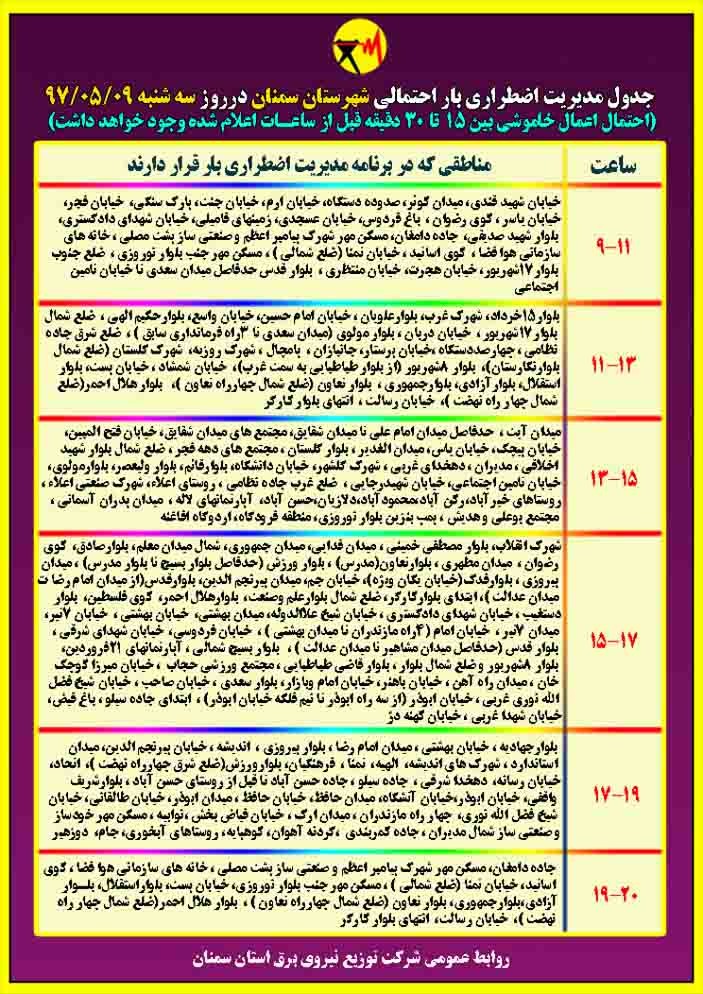 جدول مدیریت اضطراری بار احتمالی شهرستان سمنان درروز سه شنبه ۹۷/۰۵/۰۹
(احتمال اعمال خاموشی بین ۱۵ تا ۳۰ دقیقه قبل از ساعـات اعلام شده وجود خواهد داشت)
ساعت
مناطقی که در برنامه مدیریت اضطراری بار قرار دارند
۹-۱۱
خیابان شهید قندی، میدان کوثر، صدوده دستگاه، خیابان ارم، خیابان جنت، پارک سنگی، خیابان فجر،
خیابان یاسر، کوی رضوان ، باغ فردوس، خیابان عسجدی، زمینهای فامیلی، خیابان شهدای دادگستری،
بلوار شهید صدیقی، جاده دامغان، مسکن مهر شهرک پیامبر اعظم و صنعتی ساز پشت مصلی ، خانه های
سازمانی هوا فضا ، کوی اساتید ، خیابان تمنا (ضلع شمالی ) ، مسکن مهر جنب بلوار نوروزی ، ضلع جنوب
بلوار ۱۷شهریور، خیابان هجرت، خیابان منتظری ، بلوار قدس حدفاصل میدان سعدی تا خیابان تامین
اجتماعی
۱۱-۱۳
بلوار۱۵خرداد، شهرک غرب، بلوارعلویان ، خیابان امام حسین، خیابان واسع، بلوارحکیم الهی ، ضلع شمال
بلوار ۱۷شهریور ، خیابان دربان ، بلوار مولوی (میدان سعدی تا ۳راه فرمانداری سابق ) ، ضلع شرق جاده
نظامی ، چهارصددستگاه ،خیابان پرستار، جانبازان ، بامچال ، شهرک روزبه، شهرک گلستان (ضلع شمال
بلوارنگارستان)، بلوار ۸شهریور (از بلوار طباطبایی به سمت غرب)، خیابان شمشاد ، خیابان پست، بلوار
استقلال، بلوار آزادی، بلوارجمهوری ، بلوار تعاون (ضلع شمال چهارراه تعاون )، بلوار هلال احمر(ضلع
شمال چهار راه نهضت )، خیابان رسالت ، انتهای بلوار کارگر
۱۳-۱۵
میدان آیت ، حدفاصل میدان امام علی تا میدان شقایق، مجتمع های میدان شقایق، خیابان فتح المبین،
خیابان پیچک، خیابان یاس، میدان الغدیر ، بلوار گلستان ، مجتمع های دهه فجر ، ضلع شمال بلوار شهید
اخلاقی ، مدیران ، دهخدای غربی ، شهرک گلشهر، خیابان دانشگاه، بلوارقائم، بلوار ولیعصر، بلوارمولوی،
خیابان تامین اجتماعی، خیابان شهیدرجایی ، ضلع غرب جاده نظامی ، روستای اعلاء، شهرک صنعتی اعلاء ،
روستاهای خیرآباد، رکن آباد،محمودآباد،دلازیان،حسن آباد، آپارتمانهای لاله ، میدان پدران آسمانی ،
مجتمع بوعلی و هدیش ، پمپ بنزین بلوار نوروزی، منطقه فرودگاه، اردوگاه افاغنه
۱۵-۱۷
شهرک انقلاب، بلوار مصطفی خمینی ، میدان فدایی، میدان جمهوری، شمال میدان معلم، بلوارصادق، کوی
رضوان ، میدان مطهری ، بلوارتعاون(مدرس) ، بلوار ورزش (حدفاصل بلوار بسیج تا بلوار مدرس) ، میدان
پیروزی ، بلوارفدک(خیابان یگان ویژه)، خیابان جم، میدان پیرنجم الدین، بلوارقدس(از میدان امام رضا ت
میدان عدالت )، ابتدای بلوارکارگر، ضلع شمال بلوارعلم وصنعت، بلوارهلال احمر، کوی فلسطین، بلوار
دستغیب ، خیابان شهدای دادگستری ، خیابان شیخ علاالدوله، میدان بهشتی، خیابان بهشتی ، خیابان ۷تیر،
میدان ۷تیر ، خیابان امام (۴راه مازندران تا میدان بهشتی ) ، خیابان فردوسی، خیابان شهدای شرقی ،
بلوار قدس (حدفاصل میدان مشاهیر تا میدان عدالت ) ، بلوار بسیج شمالی ، آپارتمانهای ۲۱فروردین،
بلوار ۸شهریور و ضلع شمال بلوار ، بلوار قاضی طباطبایی ، مجتمع ورزشی حجاب ، خیابان میرزا کوچک
خان ، میدان راه آهن ، خیابان باهنر، خیابان امام وبازار، بلوار سعدی ، خیابان صاحب ، خیابان شیخ فضل
الله نوری غربی ، خیابان ابوذر (از سه راه ابوذر تا نیم فلکه خیابان ابوذر) ، ابتدای جاده سیلو ، باغ فیض،
خیابان شهدا غربی ، خیابان کهنه دژ
۱۷-۱۹
بلوارجهادیه ، خیابان بهشتی ، میدان امام رضا ، بلوار پیروزی ، اندیشه ، خیابان پیرنجم الدین، میدان
استاندارد ، شهرک های اندیشه، الهیه، تمنا ، فرهنگیان، بلوارورزش(ضلع شرق چهارراه نهضت )، اتحاد،
خیابان رسانه، دهخدا شرقی ، جاده سیلو ، جاده حسن آباد تا قبل از روستای حسن آباد ، بلوارشریف
واقفی، خیابان ابوذر،خیابان آتشگاه، میدان حافظ، خیابان حافظ ، میدان ابوذر، خیابان طالقانی، خیابان
شیخ فضل الله نوری، چهار راه مازندران ، میدان ارک ، خیابان فیاض بخش ، توابیه ، مسکن مهر خودساز
و صنعتی ساز شمال مدیران ، جاده کمربندی ، گردنه آهوان، کوهپایه، روستاهای آبخوری، جام، دوزهیر
۱۹-۲۰
جاده دامغان، مسکن مهر شهرک پیامبر اعظم و صنعتی ساز پشت مصلی ، خانه های سازمانی هوا فضا ، کوی
اساتید، خیابان تمنا (ضلع شمالی ) ، مسکن مهر جنب بلوار نوروزی، خیابان پست، بلواراستقلال، بلـوار
آزادی،بلوارجمهوری، بلوار تعاون (ضلع شمال چهارراه تعاون ) ، بلوار هلال احمر(ضلع شمال چهار راه
نهضت )، خیابان رسالت، انتهای بلوار کارگر
روابط عمومی شرکت توزیع نیروی برق استان سمنان